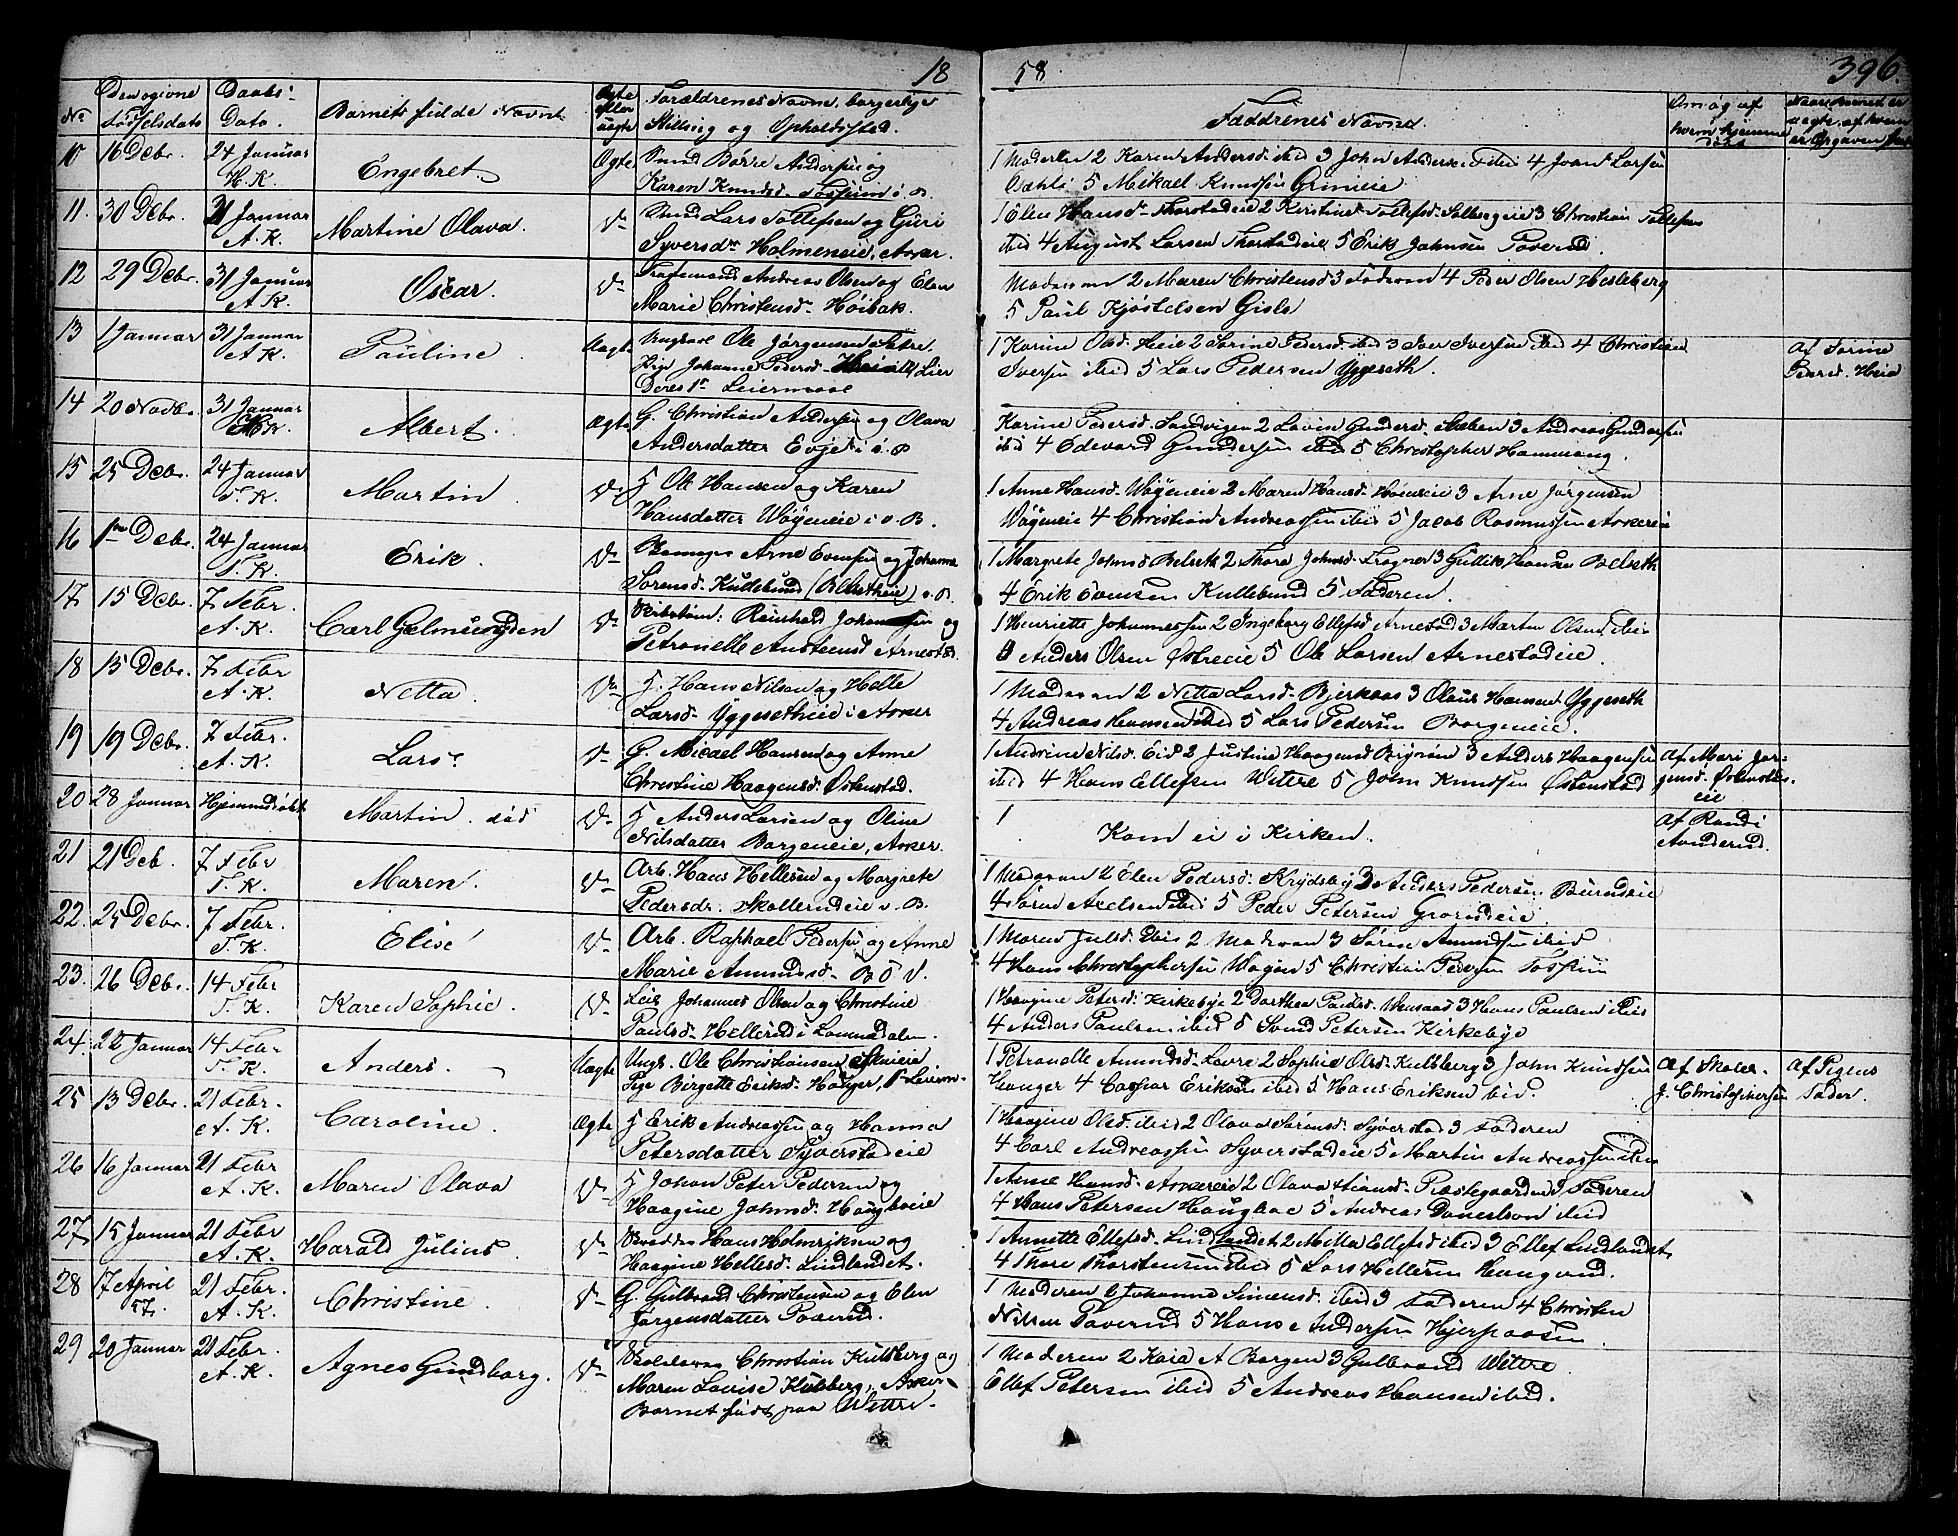 18 58 396
No Den ogivne Fødselsdato Daabs Dato. Barnets fulde Navn Ægte eller uægte Forældrenes Navne, borgerlige Stilling og Opholdssted. Faddrenes Navne. Om og af hvem hjemmedøbt
10 16 Debr. 24 Januar H.K. Engebret. Ægte Svend Børre Andersen og
Karen Knudsd.
1 Moderen 2 Karen Andersd. ibid 3 John Anders. 4 Joan Larsen
5 Mikael Knudsen Grinieie
11. 30 Debr. 31 Januar A.K. Martine Olava. Do Lars Tollefsen og Guri
Syversdr Holmeneie, Asker.
1 Elen Hansd. Thorstadeie 2 Kirstine Tollefsd. Solbergeie 3 Christian Tollefsen
ibid 4 August Larsen Thorstadeie 5 Erik Johnsen Toverud.
12 29 Debr. 31 Januar A.K. Oscar. Do Andreas Olsen og Elen
Marie Christensd. Høibak.
Madam 2 Maren Christensd. 3 Faderen 4 Peder Olsen Hesleberg
5 Paul Kjøstelsen Gisle
13 1 Januar 31 Januar A.K. Pauline Uægte Ungkarl Ole Jørgensen
Pige Johanne Pedersd. Lier
Deres 1ste Leiermaal
1 Karine Olsd. Heie 2 Sørine Pedersd. ibid 3 Iver Iversen ibid 4 Christian
Iversen ibid 5 Lars Pedersen Yggeseth.
Af Sørine
Pedersd. Heie
14 20 Novbr. 31 Januar Albert. Ægte G. Christian Andersen og Olava
Andersdatter Evje i Ø.B
Karine Pedersd. Sandvigen 2 Lovise Gundersd. 3 Andreas Gundersen
ibid 4 Edevard Gundersen ibid 5 Christopher Hammang.
15 25 Debr. 24 Januar T.K. Martin Do H Ole Hansen og Karen
Hansdatter Wøyeneie i V.B.
1 Anne Hansd. Wøyeneie 2 Maren Hansd. 3 Arne Jørgensen
Wøyeneie 4 Christian Andreassen ibid 5 Jacob Rasmussen Askereie
16 1ste Debr. 24 Januar T.K. Erik. Do Arne Evensen og Johanne
Sørensd. Kullebund (Belsetheie) V.B.
1 Margrete Johnsd Belseth 2 Thora Johnsd. 3 Gullik Hansen Belseth
4 Erik Evensen Kullebund 5 Faderen.
17 15 Debr. 7 Febr. A.K. Carl Do Reinhold Johannessen og
Petronelle Austensd Arnestad.
1 Henriette Johannessen 2 Ingeborg Ellefsd. Arnestad 3 Martin Olsen ibid
4 Anders Olsen Østreeie 5 Ole Larsen Arnestadeie.
18 15 Debr. 7 Febr A.K. Netta. Do H. Hans Nilsen og Helle
Larsd. Yggesetheie i Asker
1 Madam 2 Netta Larsd. Bjerkaas 3 Olaus Hansen Yggeseth
4 Andreas Hansen ibid 5 Lars Pedersen Borgeneie.
19 19 Debr. 7 Febr. A.K. Lars. Do G. Micael Hansen og Anne
Christine Haagensd. Østenstad.
1 Andrine Nilsd. Eid 2 Justine Haagensd 3 Anders Haagensen
ibid 4 Hans Ellefsen Wettre 5 John Knudsen Østenstad
Af Mari Jørgensd. Østenstadeie
20 28 Januar Hjemmedøbt Martin. død Do H Anders Larsen og Oline
Nilsdatter Borgeneie, Asker.
1 Kom ei i Kirken.
Af Randi
21 21 Deb. 7 Febr T.K. Maren. Do Arb. Hans Hellesen og Margrete
Pedersdr. Skollerudeie V.B.
1 Madam 2 Elen Pedersd. Krydsby 3 Anders Pedersen
4 Søren Axelsen ibid 5 Peder Petersen
22. 25 Debr. 7 Febr. T.K. Elise Do Arb. Raphael Pedersen og Anne
Marie Amundsd. Bø V.
1 Maren Julsd. ibid 2 Madam 3 Søren Amundsen ibid
4 Hans Christophersen Wøyen 5 Christian Pedersen
23. 26 Debr. 14 Febr T.K. Karen Sophie. Do Leil Johannes Olsen og Christine
Paulsd. Hellerud i Lommedalen.
1 Haagine Petersd. Kirkebye 2 Dorthea Paulsd. 3 Hans Paulsen ibid
4 Anders Paulsen ibid 5 Svend Petersen Kirkebye
24. 22 Januar 14 Febr T.K. Anders. Uægte Ungk. Ole Christiansen
Pige Birgitte Eriksd. Hanger, 1ste Leierm.
1 Petronelle Amundsd. Løvre 2 Sophie Olsd. Kulsberg 3 John Knudsen
Hanger 4 Caspar Eriksen ibid 5 Hans Eriksen ibid.
Af Skolel.
J. Christophersen
Af Pigens
Fader.
25 13 Debr. 21 Febr. A.K. Caroline. Ægte H Erik Andreassen og Hanna
Petersdatter Syverstadeie
1 Haagine Olsd. ibid 2 Olava Sørensd. Syverstad 3 Faderen
4 Carl Andreassen Syverstadeie 5 Martin Andreassen ibid
26 16 Januar 21 Febr A.K. Maren Olava Do H Johan Peter Pedersen og
Haagine Johnsd. Haugboeie
1 Anne Hansd. Askereie 2 Olava Præstegaarden 3 Faderen
4 Hans Petersen Haugboe 5 Andreas Danielsen ibid
27 15 Januar 21 Febr A.K. Harald Julius. Do Hans Helmriksen og
Haagine Hellesd. Lindlandet.
1 Annette Ellefsd. Lindlandet 2 Mitta Ellefsd ibid 3 Ellef Lindlandet
4 Thore Thorstensen ibid 5 Lars Hellesen
28 17 April 57. 21 Febr. A.K. Christine. Do G. Gulbrand Christensen og Elen
Jørgensdatter Toverud.
1 Moderen 2 Johanne Simensd. ibid 3 Faderen 4 Christen
Nilsen Toverud 5 Hans Andersen Hjerpaasen
29 20 Januar 21 Febr. A.K. Agnes Gundborg. Do Christian Kulsberg og
Maren Lovise Kulsberg, Asker.
Barnet født paa Wettre.
1 Moderen 2 Kaia A Borgen 3 Gulbrand Wettre
Ellef Petersen ibid 5 Andreas Hansen ibid.